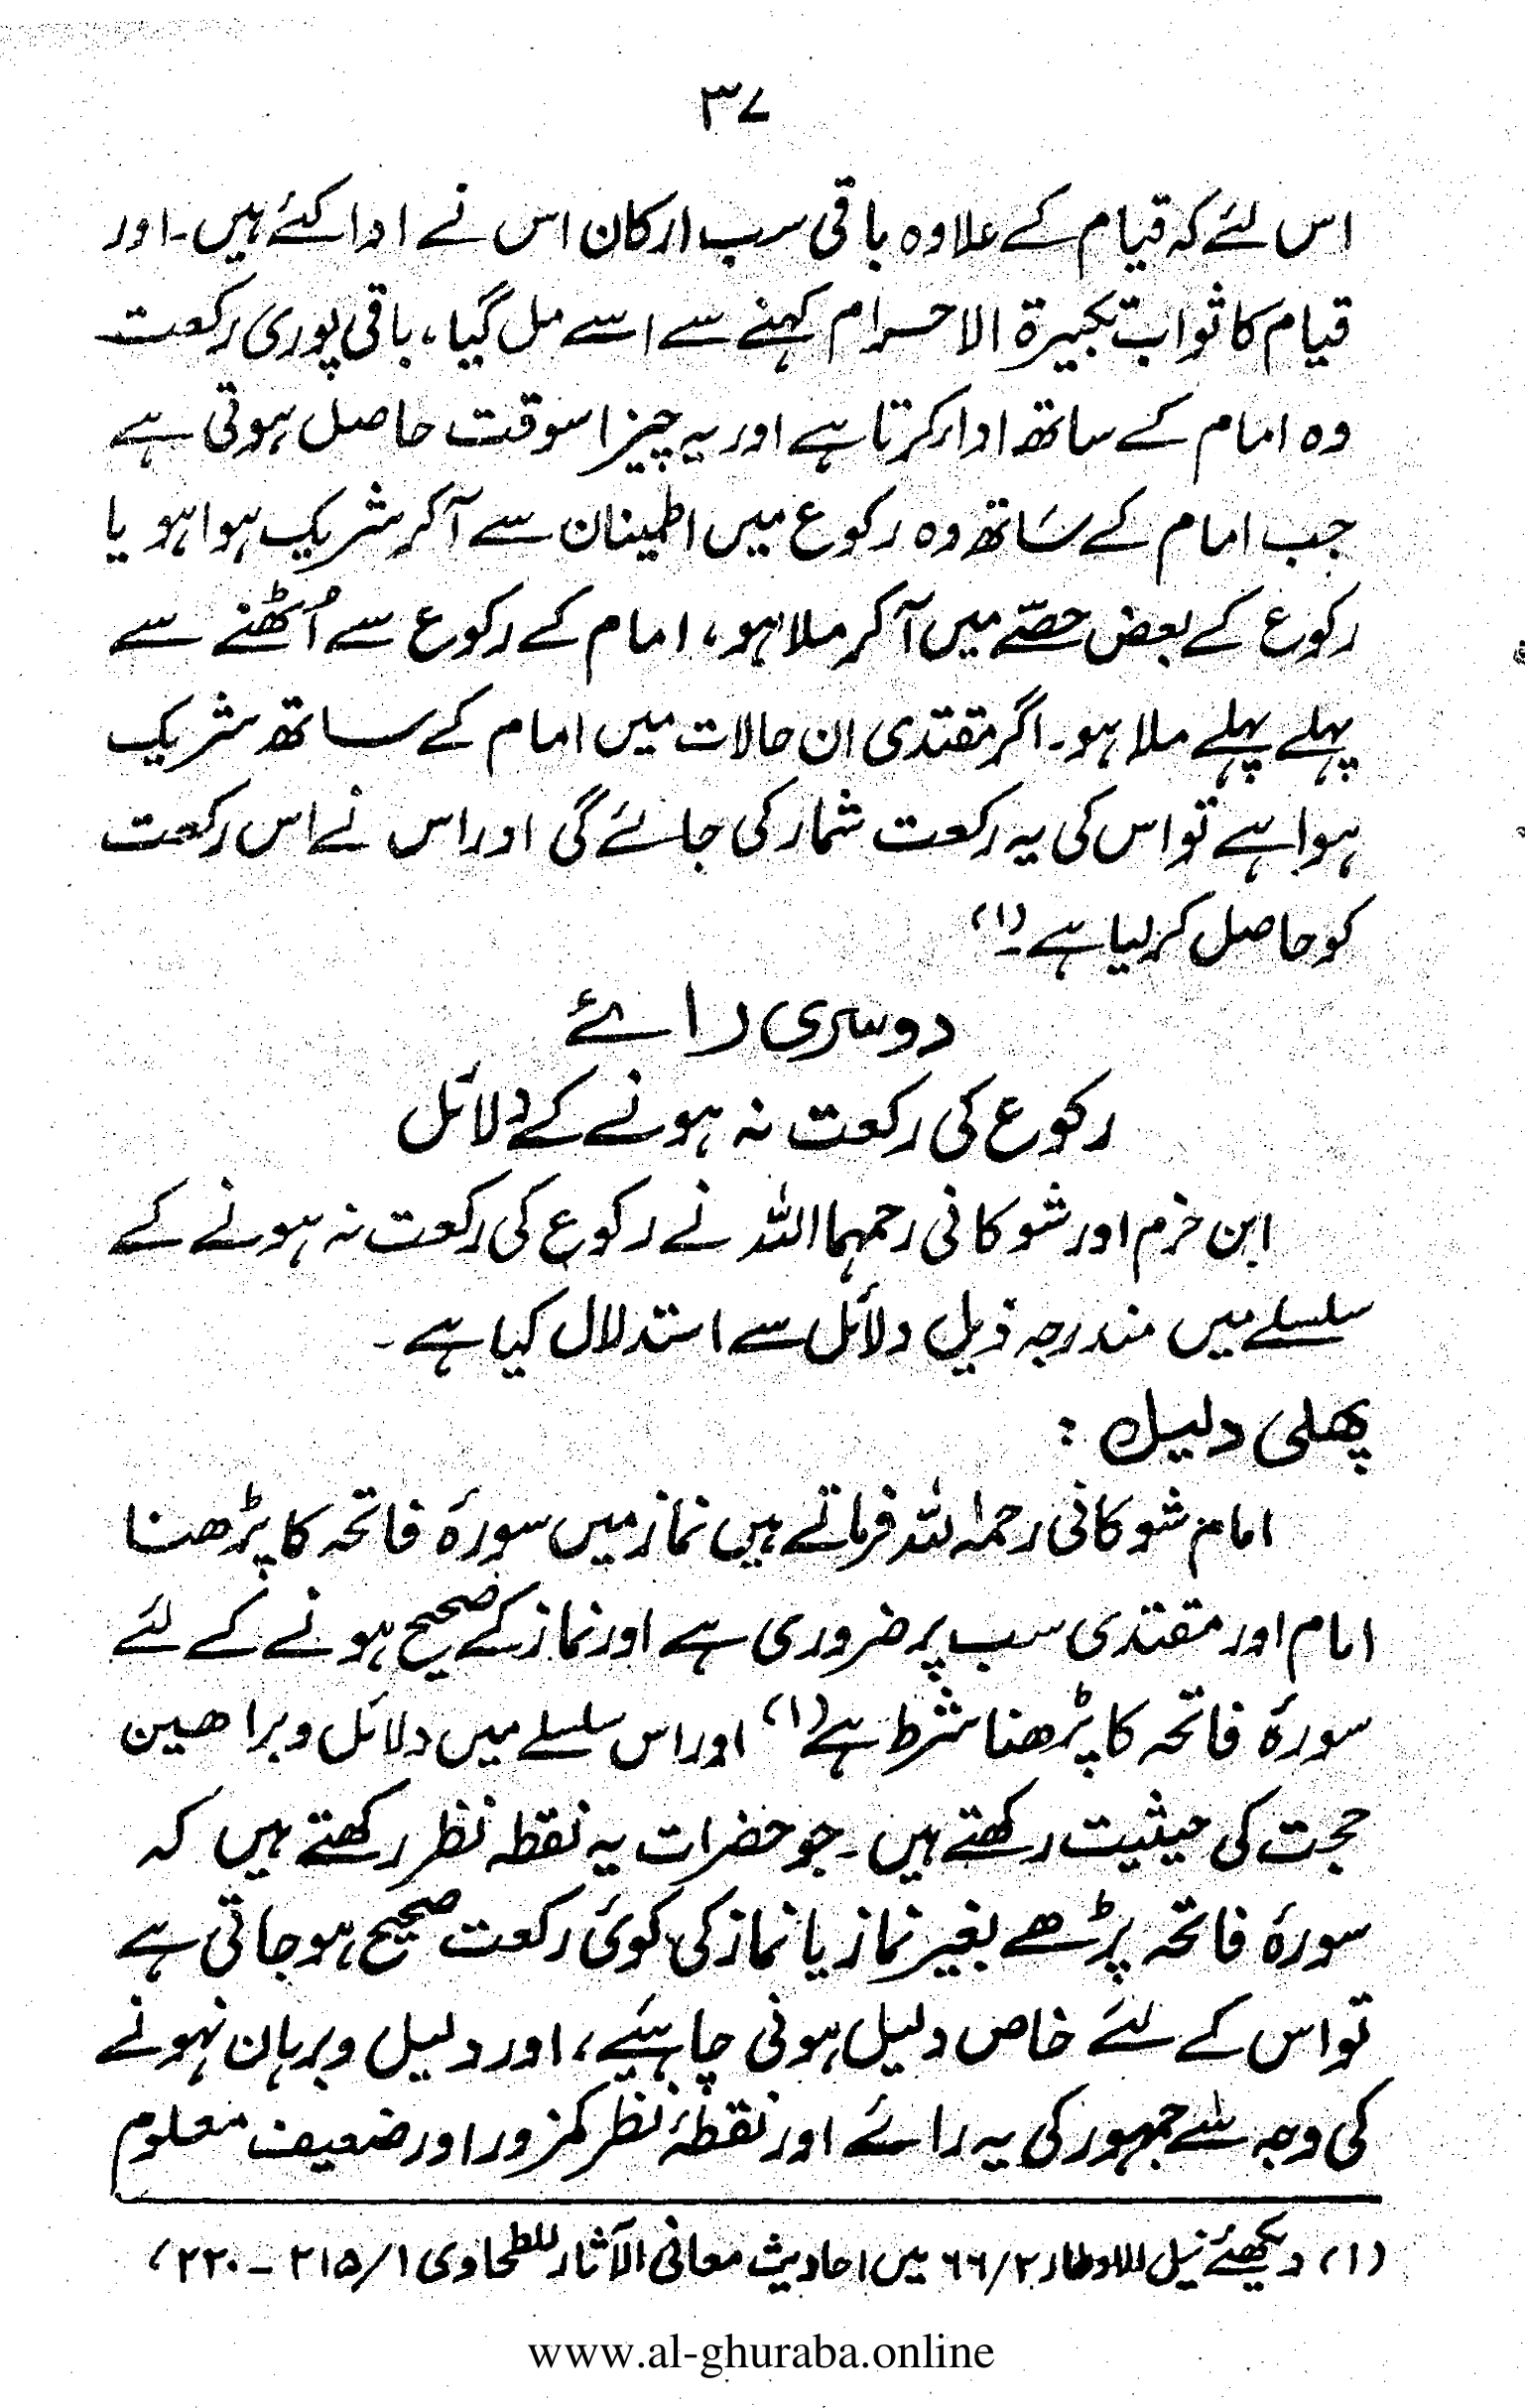 ۳۷
اس لئے کہ قیام کے علاوہ باقی سب ارکان اس نے ادا کئے ہیں۔ اور
قیام کا ثواب تکبیرۃ الاحرام کہنے سے اسے مل گیا، باقی پوری رکعت
وہ امام کے ساتھ ادا کرتا ہے اور یہ چیز اسوقت حاصل ہوتی ہے
جب امام کے ساتھ وہ رکوع میں اطمینان سے آکر شریک ہوا ہو یا
رکوع کے بعض حصّے میں آکر ملا ہو، امام کے رکوع سے اُٹھنے سے
پہلے پہلے ملا ہو۔ اگر مقتدی ان حالات میں امام کے ساتھ شریک
ہوا ہے تو اس کی یہ رکعت شمار کی جائے گی اور اس نے اس رکعت
کو حاصل کرلیا ہے۔(۱)
دوسری رائے
رکوع کی رکعت نہ ہونے کے دلائل
ابن خرم اور شوکانی رحمہما اللہ نے رکوع کی رکعت نہ ہونے کے
سلسلے میں مندرجہ ذیل دلائل سے استدلال کیا ہے۔
پھلی دلیل :
امام شوکانی رحمہ اللہ فرماتے ہیں نماز میں سورۂ فاتحہ کا پڑھنا
امام اور مقتدی سب پر ضروری ہے اور نماز کے صحیح ہونے کے لئے
سورۂ فاتحہ کا پڑھنا شرط ہے (۱) اور اس سلسلے میں دلائل و براھین
حجت کی حیثیت رکھتے ہیں۔ جو حضرات یہ نقطہ نظر رکھتے ہیں کہ
سورۂ فاتحہ پڑھے بغیر نماز یا نماز کی کوئی رکعت صحیح ہو جاتی ہے
تو اس کے لئے خاص دلیل ہونی چاہئیے، اور دلیل و برہان نہونے
کی وجہ سے جمہور کی یہ رائے اور نقطۂ نظر کمزور اور ضعیف معلوم
(۱) دیکھئے نیل الاوطار ۲/۶۶ میں احادیث معانی الآثار للطحاوی ۱/۲۱۵ - ۲۲۰،
www.al-ghuraba.online